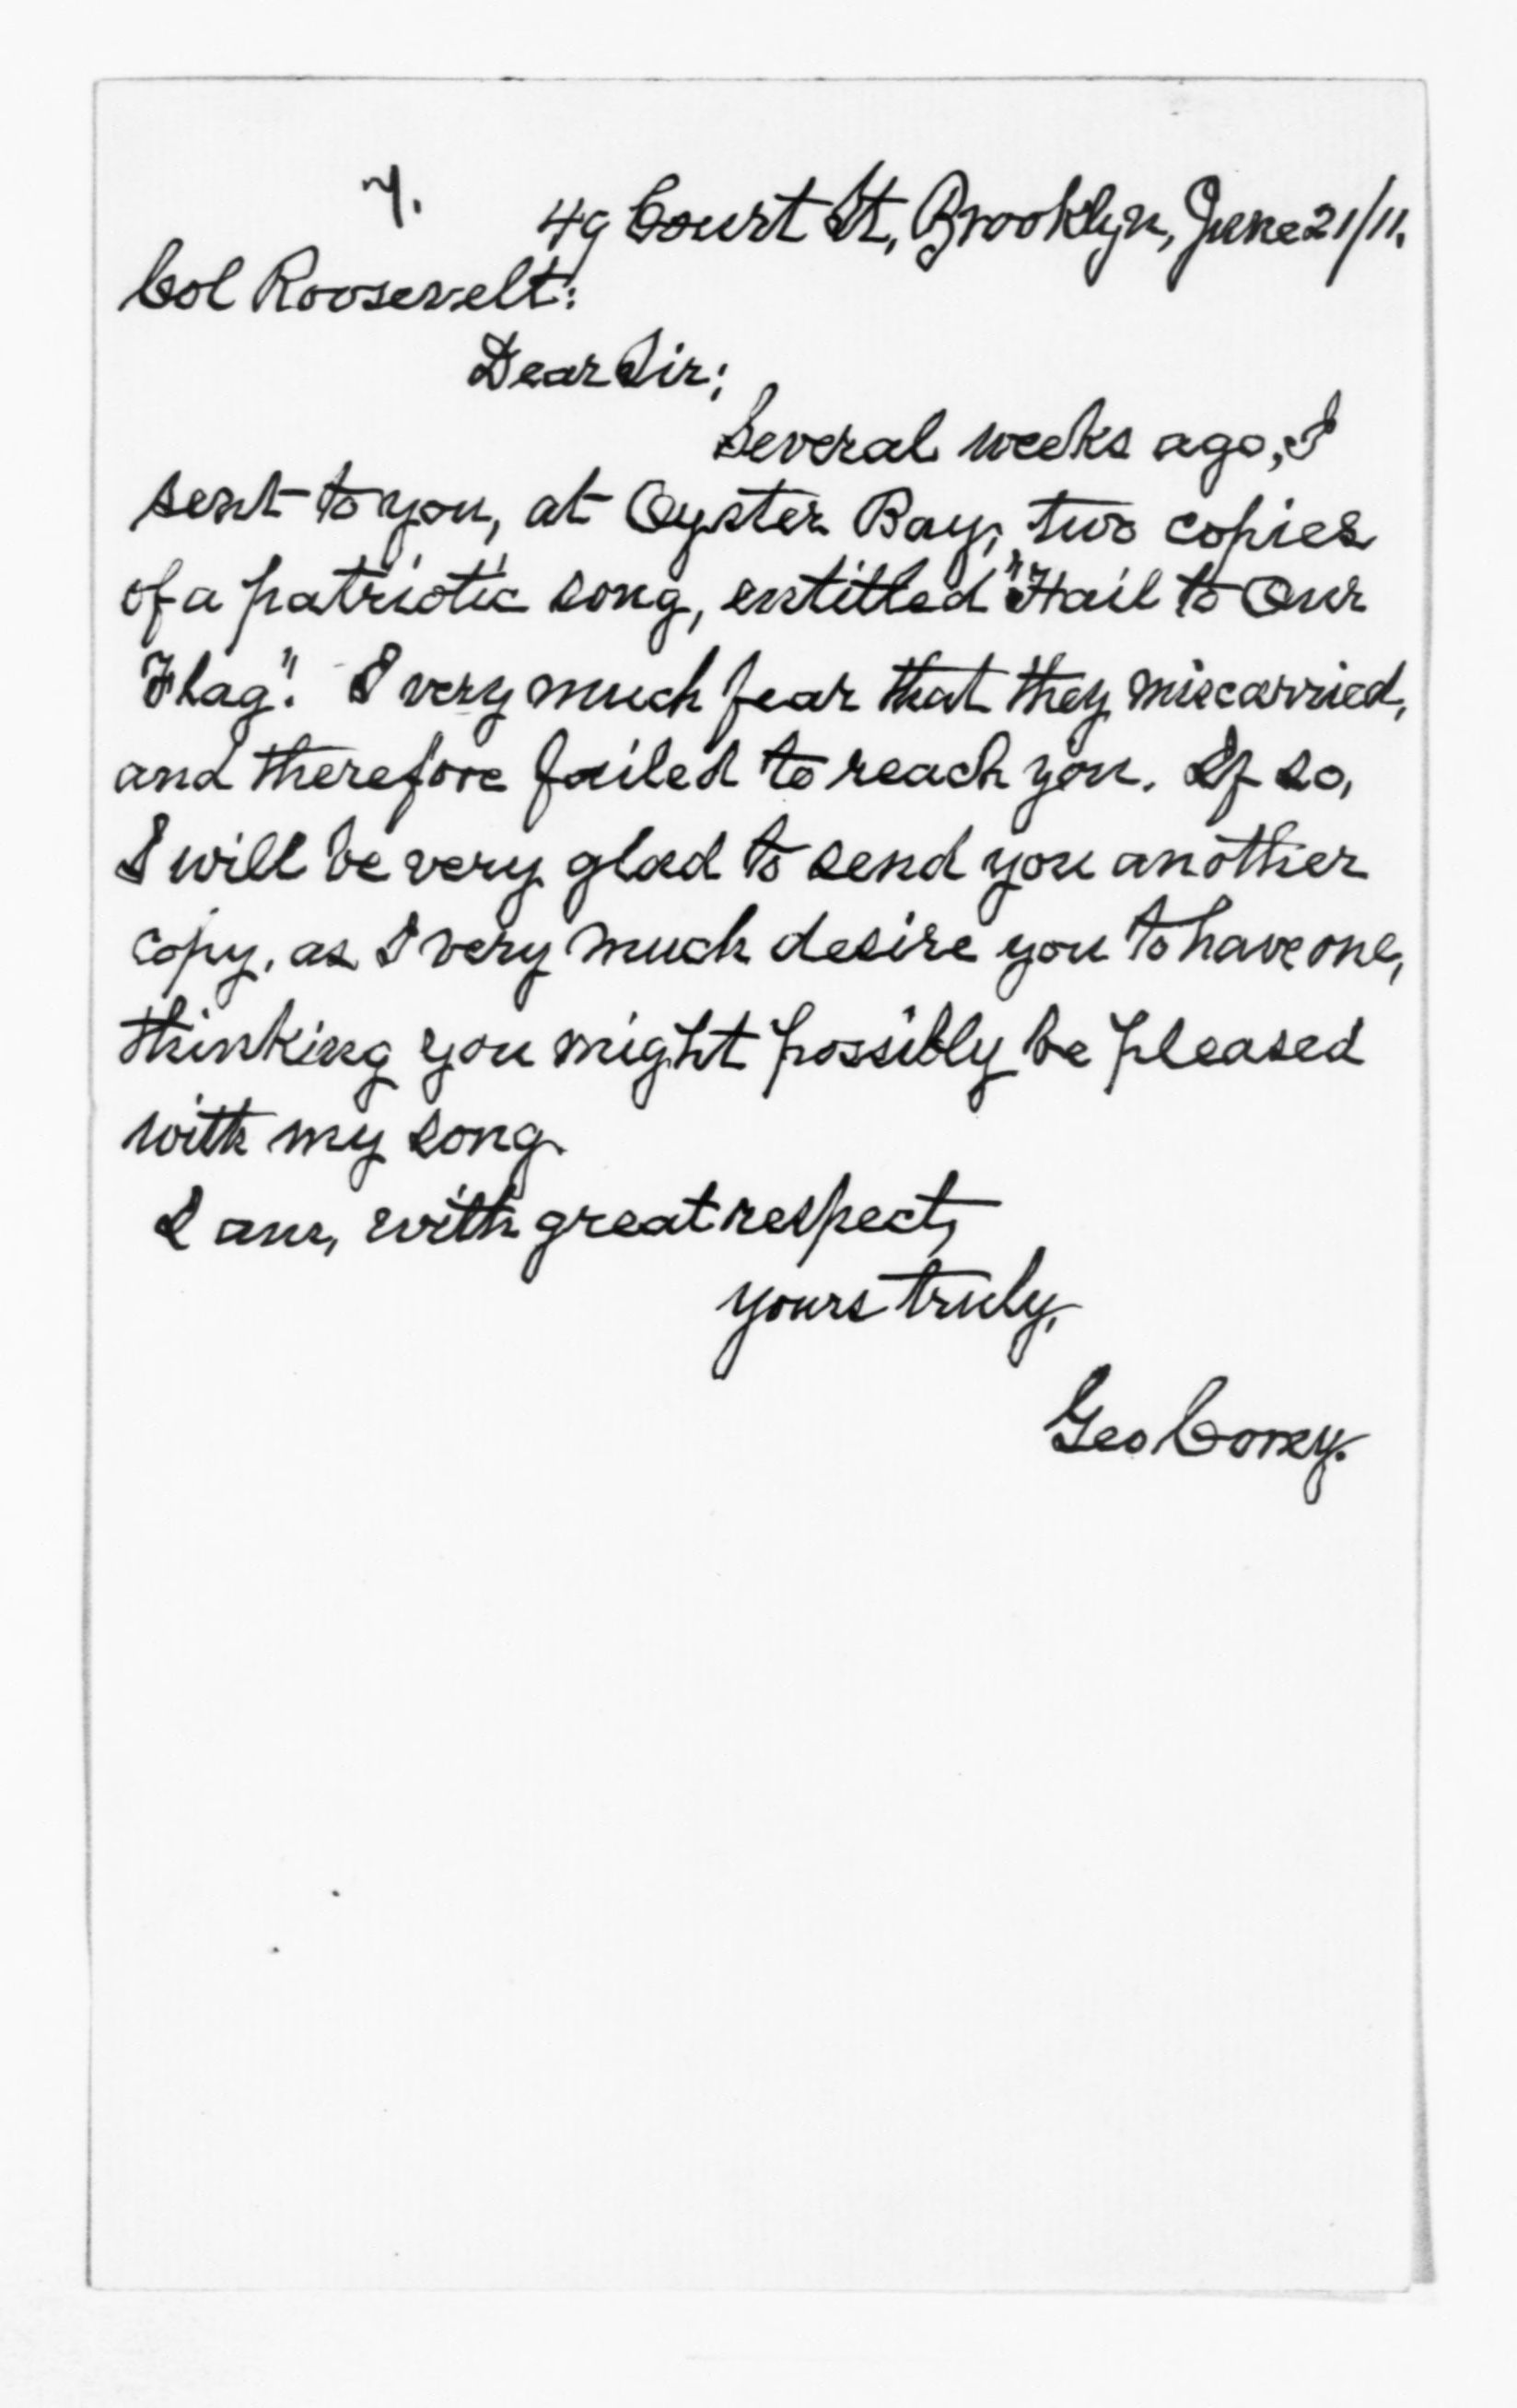 49 Court St, Brooklyn, June 21/11.
Col Roosevelt:
Dear Sir;
Several weeks ago, I
sent to you, at Oyster Bay, two copies
of a patriotic song, entitled "Hail to Our
Flag". I very much fear that they miscarried,
and therefore failed to reach you. If so,
I will be very glad to send you another
copy, as I very much desire you to have one,
thinking you might possibly be pleased
with my song.
I am, with great respect,
yours truly,
Geo